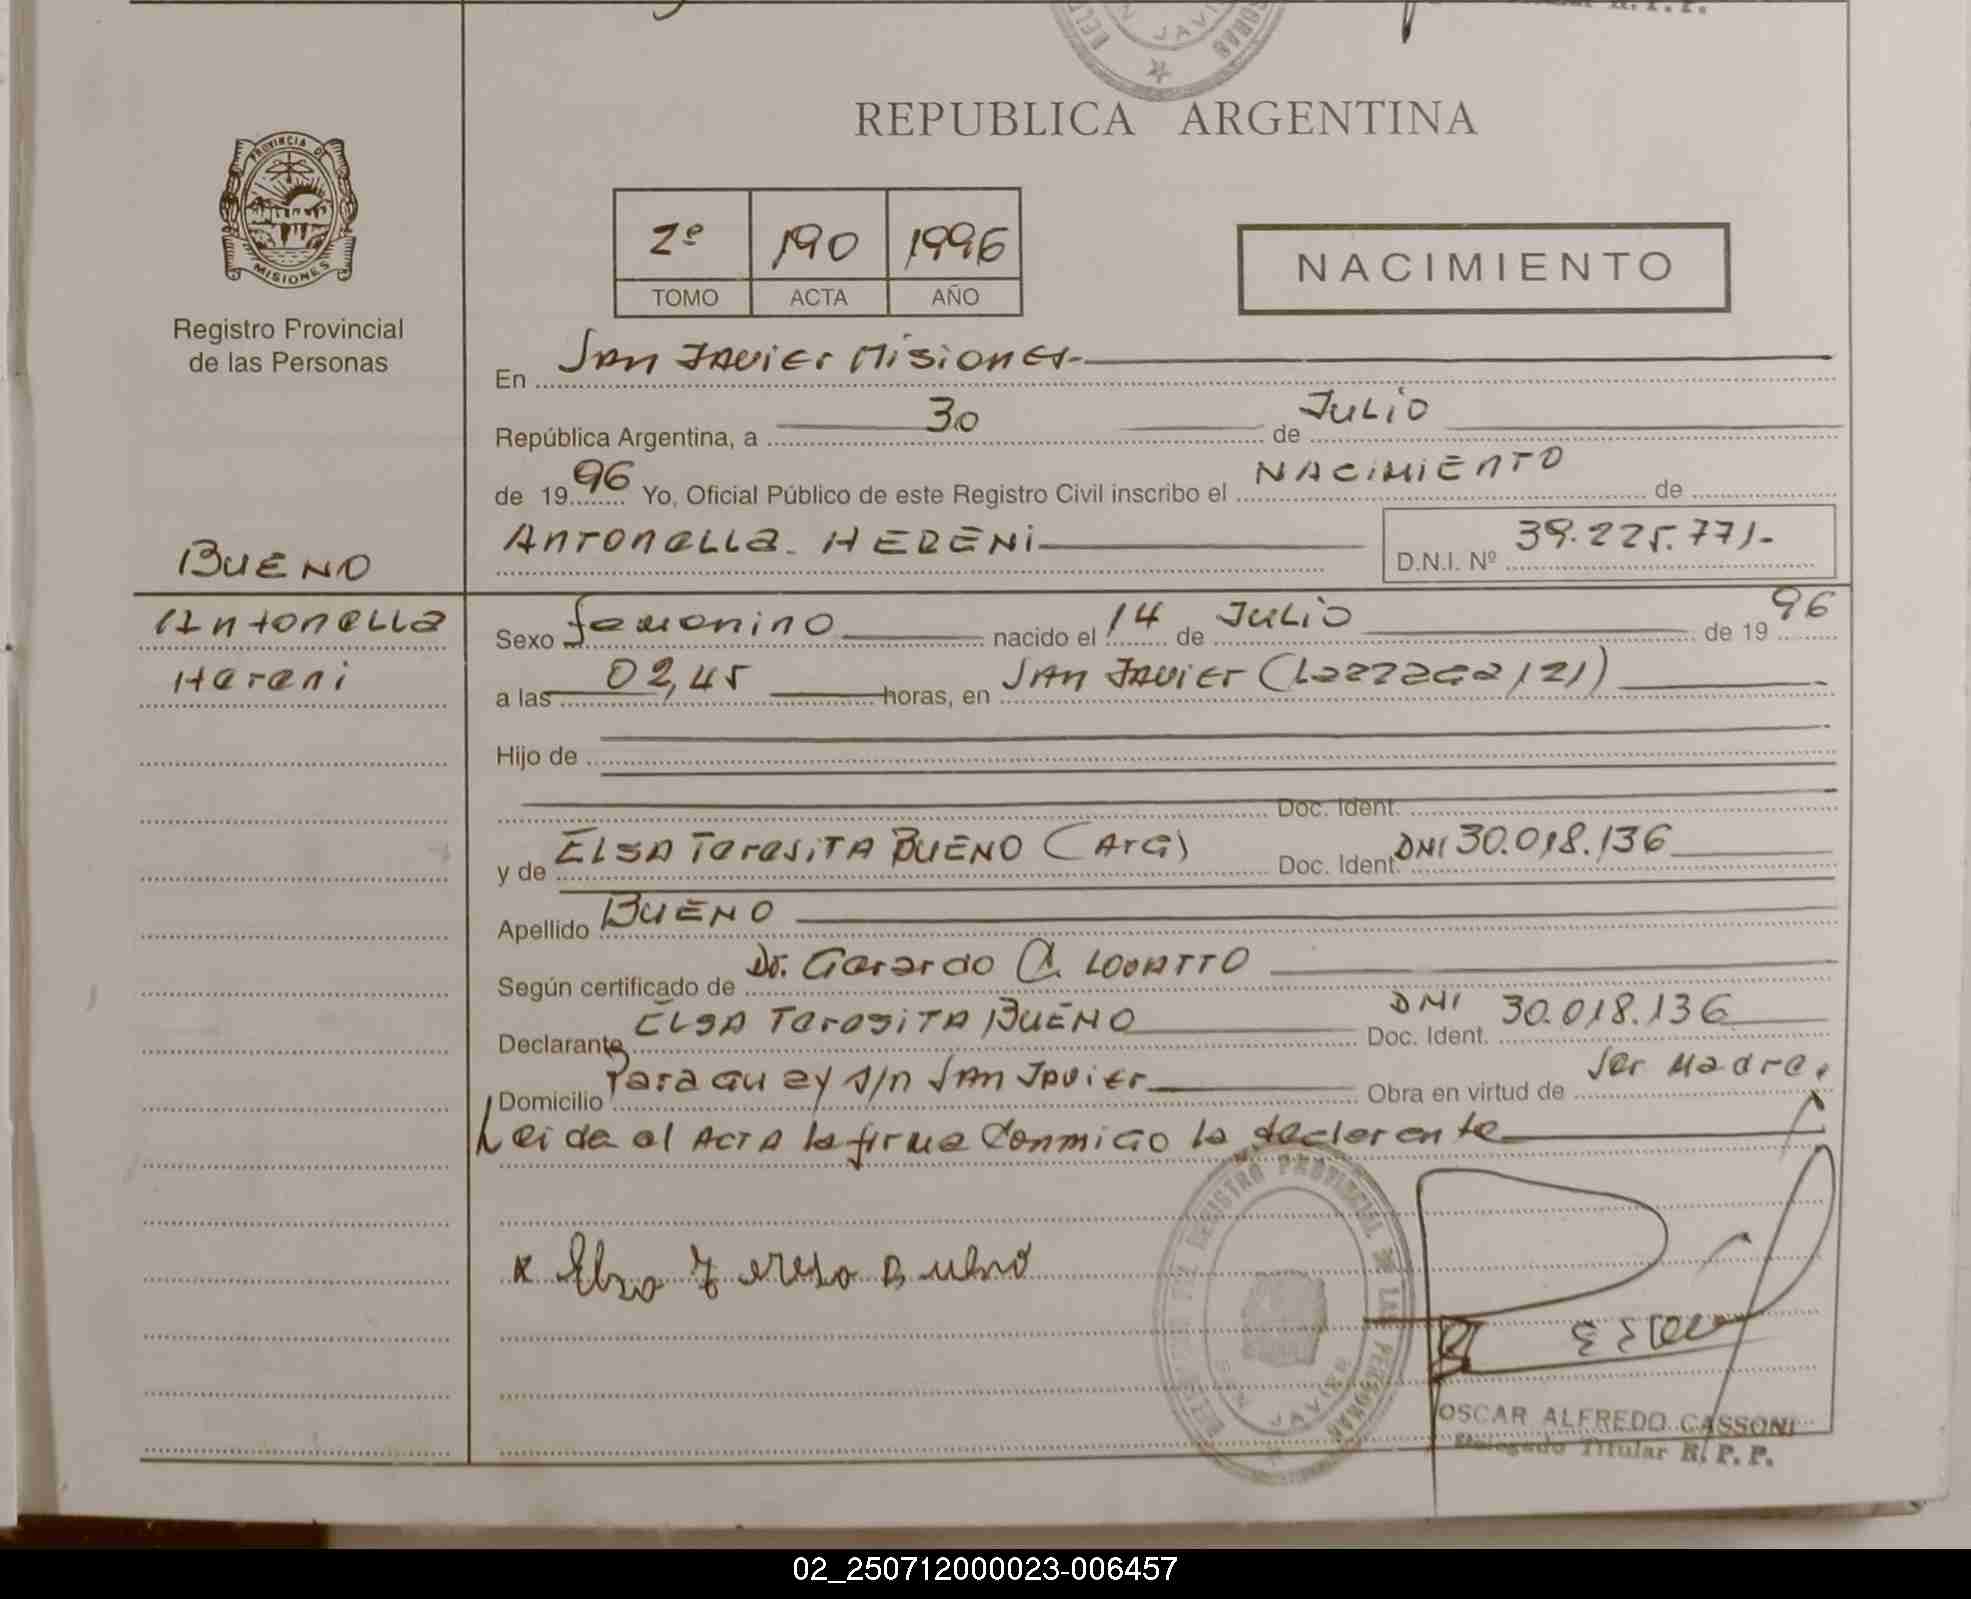 SAN JAVIER
REPUBLICA ARGENTINA
PROVINCIA DE
MISIONES
Registro Provincial
de las Personas
2º 190 1996
TOMO ACTA AÑO
NACIMIENTO
En San Javier Misiones
República Argentina, a 30 de Julio
de 1996 Yo, Oficial Público de este Registro Civil inscribo el NACIMIENTO de
Antonella HERENI D.N.I. Nº 39.225.771.-
BUENO
Antonella
Hereni
Sexo femenino nacido el 14 de Julio de 1996
a las 02,45 horas, en San Javier (Lazzaga 121)
Hijo de
Doc. Ident.
y de Elsa Teresita BUENO (Arg) Doc. Ident. DNI 30.018.136
Apellido BUENO
Según certificado de Dr. Gerardo A. Lovatto
Declarante Elsa Teresita BUENO Doc. Ident. DNI 30.018.136
Domicilio Paraguay s/n San Javier Obra en virtud de ser madre.
Leida el ACTA la firma conmigo la declarente
x Elsa Teresa Bueno
REGISTRO PROVINCIAL DE LAS PERSONAS
SAN JAVIER
OSCAR ALFREDO CASSONI
Delegado Titular R. P. P.
02_250712000023-006457